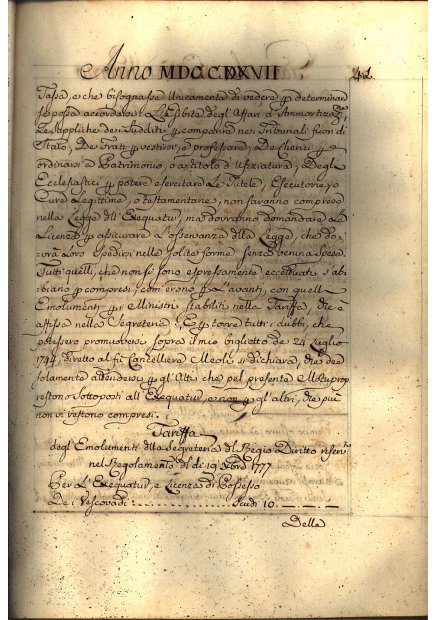 Anno MDCCLXXVII 41.
Tassa, e che bisognasse unicamente di vedere p determinar
se possa accordarsi: L'Esibite degl'Affari d'Ammortizaz.ne
Le Suppliche dei Sudditi p comparire nei Tribunali fuori di
Stato, De Frati p vestirsi, e professare; De Cherici p
ordinarsi a Patrimonio, o a titolo d'Ufiziatura; Degl'
Ecclesiastici p potere esercitare Le Tutele, Esecutorie, o
Cure Legittime, o testamentarie, non saranno comprese
nella Legge dll'Exequatur, ma dovranno domandare La
Licenza p assicurare L'osservanza dlla Legge, che do-
vrà Loro spedirsi nelle solite forme senza veruna spesa.
Tutti quelli, che non si sono espressamente eccettuati s'ab-
biano p compresi com'erano p L'avanti, con quelli
Emolumenti p i Ministri stabiliti nella Tariffa, che è
affissa nella Segreteria; E p torre tutti i dubbi, che
potessero promuoversi sopra il mio biglietto de 24 Luglio
diretto al fù Cancelliere Meoli si dichiara, che dee
solamente attendersi p gl'Atti che pel presente Motuprop.
restono sottoposti all'Exequatur, e non p gl'altri, che più
non vi restono compresi.
Tariffa
degl'Emolumenti dlla Segreteria dl Regio Diritto
nel Regolamento dl di 19 9bre 1777
Per L'Exequatur, e Licenza di Possesso
De i Vescovadi: Scudi 10
Delle